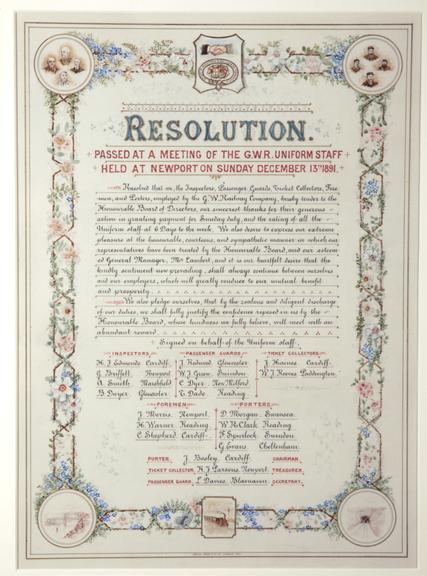 RESOLUTION.
PASSED AT A MEETING OF THE G.W.R. UNIFORM STAFF
HELD AT NEWPORT ON SUNDAY DECEMBER 13TH 1891.
Resolved that we, the Inspectors, Passenger Guards, Ticket Collectors, Fore-
men, and Porters, employed by the G.W. Railway Company, hereby tender to the
Honourable Board of Directors, our sincerest thanks for their generous
action in granting payment for Sunday duty, and the rating of all the
Uniform staff at 6 Days to the week. We also desire to express our extreme
pleasure at the honourable, courteous, and sympathetic manner in which our
representatives have been treated by the Honourable Board, and our esteem-
ed General Manager, Mr. Lambert, and it is our heartfelt desire that the
kindly sentiment now prevailing, shall always continue between ourselves
and our employers, which will greatly redound to our mutual benefit
and prosperity.
We also pledge ourselves, that by the zealous and diligent discharge
of our duties, we shall fully justify the confidence reposed in us by the
Honourable Board, whose kindness we fully believe, will meet with an
abundant reward.
Signed on behalf of the Uniform staff.
INSPECTORS PASSENGER GUARDS TICKET COLLECTORS
H. J. Edmonds Cardiff. J. Redmond Gloucester. J. Haines Cardiff.
G. Briffett Newport W. J. Green Swindon W. J. Reeves Paddington.
A. Smith Marshfield C. Dyer New Milford.
B. Dwyer Gloucester. T. Dade Reading.
FOREMEN PORTERS
J. Morris. Newport. D. Morgan Swansea.
H. Warner Reading. W. H. Clark Reading.
C. Shepherd. Cardiff. F. Spurlock Swindon.
G. Evans. Cheltenham.
PORTER, J. Besley. Cardiff. CHAIRMAN.
TICKET COLLECTOR, H. J. Parsons. Newport. TREASURER.
PASSENGER GUARD, L. Davies. SECRETARY.